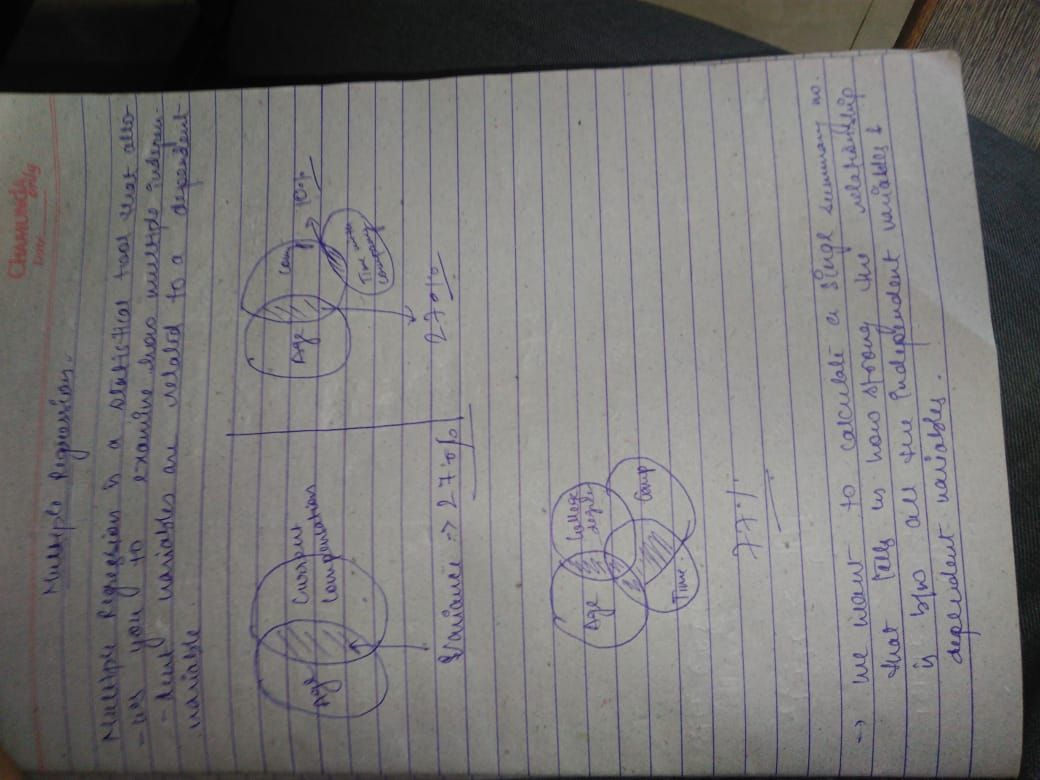 CHAMUNDA
only
Date
Multiple Regression.
Multiple Regression is a statistical tool that allo
-ws you to examine how multiple indepen-
-dent variables are related to a dependent
variable.
Age
Current
Compensation
Variance -> 27%
Age
Comp
10%
Time with
company
27%
Age
College
degree
Time
Comp
77%
-> we want to calculate a single summary no.
that tells us how strong the relationship
is b/w all the independent variables &
dependent variables.